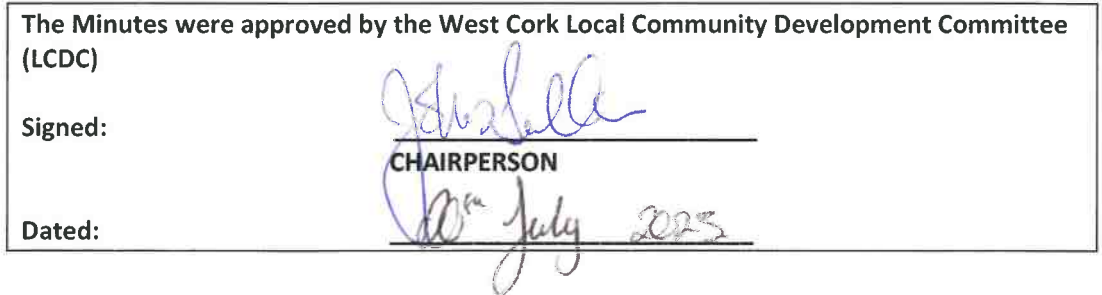 The Minutes were approved by the West Cork Local Community Development Committee
(LCDC)
Signed:
CHAIRPERSON
Dated: July